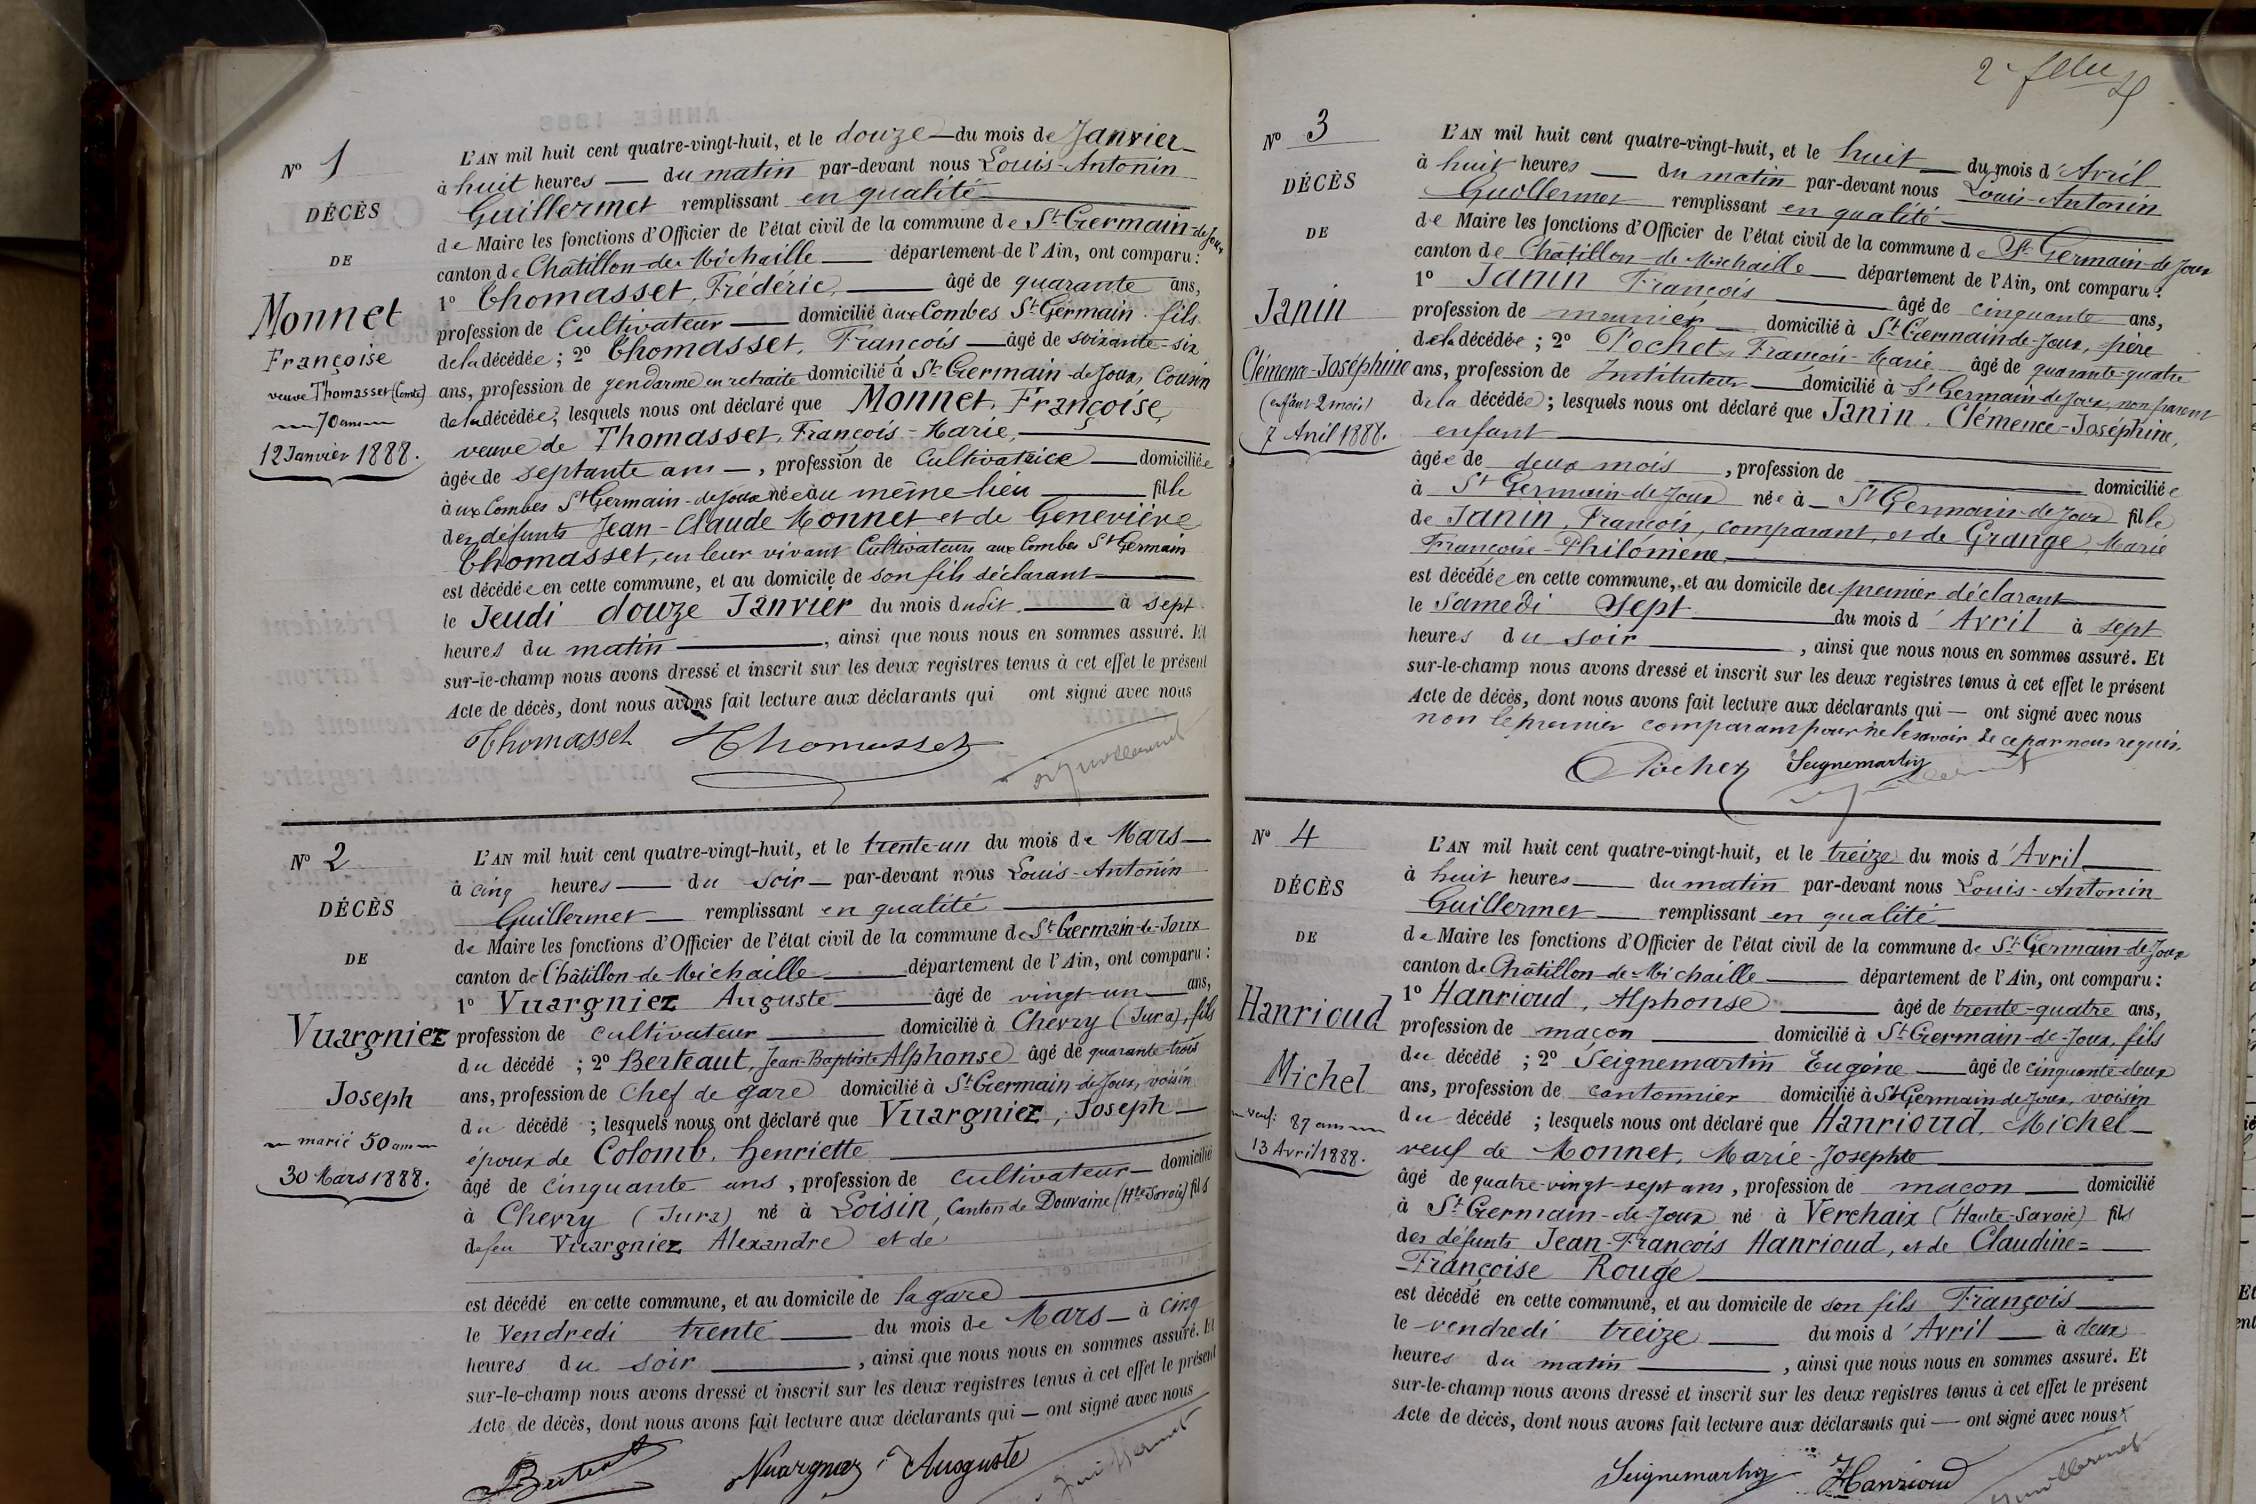 N° 1
DÉCÈS
DE
Monnet
Françoise
veuve Thomasset (Comte)
70 ans
12 Janvier 1888.
L'AN mil huit cent quatre-vingt-huit, et le douze du mois de Janvier
à huit heures du matin par-devant nous Louis-Antonin
Guillermet remplissant en qualité
de Maire les fonctions d'Officier de l'état civil de la commune de St Germain-de-Joux
canton de Châtillon-de-Michaille département de l'Ain, ont comparu :
1° Thomasset, Frédéric, âgé de quarante ans,
profession de Cultivateur domicilié aux Combes St Germain fils
de la décédée ; 2° Thomasset, François âgé de soixante-six
ans, profession de gendarme en retraite domicilié à St Germain-de-Joux, Cousin
de la décédée, lesquels nous ont déclaré que Monnet, Françoise,
veuve de Thomasset, François-Marie,
âgée de septante ans, profession de Cultivatrice domiciliée
aux Combes St Germain-de-Joux née au même lieu fille
des défunts Jean-Claude Monnet et de Geneviève
Thomasset, en leur vivant Cultivateurs aux Combes St Germain
est décédée en cette commune, et au domicile de son fils déclarant
le Jeudi douze Janvier du mois dudit à sept
heures du matin, ainsi que nous nous en sommes assuré. Et
sur-le-champ nous avons dressé et inscrit sur les deux registres tenus à cet effet le présent
Acte de décès, dont nous avons fait lecture aux déclarants qui ont signé avec nous
Thomasset Thomasset Guillermet
N° 2
DÉCÈS
DE
Vuargniez
Joseph
marié 50 ans
30 Mars 1888.
L'AN mil huit cent quatre-vingt-huit, et le trente-un du mois de Mars
à cinq heures du soir par-devant nous Louis-Antonin
Guillermet remplissant en qualité
de Maire les fonctions d'Officier de l'état civil de la commune de St Germain-de-Joux
canton de Châtillon-de-Michaille département de l'Ain, ont comparu :
1° Vuargniez Auguste âgé de vingt-un ans,
profession de cultivateur domicilié à Chevry (Jura), fils
du décédé ; 2° Berteaut, Jean-Baptiste Alphonse âgé de quarante-trois
ans, profession de Chef de gare domicilié à St Germain-de-Joux, voisin
du décédé ; lesquels nous ont déclaré que Vuargniez, Joseph
époux de Colomb, Henriette
âgé de cinquante ans, profession de cultivateur domicilié
à Chevry (Jura) né à Loisin, Canton de Douvaine (Hte Savoie) fils
de feu Vuargniez Alexandre et de
est décédé en cette commune, et au domicile de la gare
le Vendredi trente du mois de Mars à cinq
heures du soir, ainsi que nous nous en sommes assuré. Et
sur-le-champ nous avons dressé et inscrit sur les deux registres tenus à cet effet le présent
Acte de décès, dont nous avons fait lecture aux déclarants qui ont signé avec nous
Berteaut Vuargniez Auguste Guillermet
N° 3
DÉCÈS
DE
Janin
Clémence-Joséphine
(enfant 2 mois)
7 Avril 1888.
L'AN mil huit cent quatre-vingt-huit, et le huit du mois d'Avril
à huit heures du matin par-devant nous Louis-Antonin
Guillermet remplissant en qualité
de Maire les fonctions d'Officier de l'état civil de la commune de St Germain-de-Joux
canton de Châtillon-de-Michaille département de l'Ain, ont comparu :
1° Janin François âgé de cinquante ans,
profession de meunier domicilié à St Germain-de-Joux, père
de la décédée ; 2° Pochet, François-Marie âgé de quarante-quatre
ans, profession de Instituteur domicilié à St Germain-de-Joux, non parent
de la décédée ; lesquels nous ont déclaré que Janin, Clémence-Joséphine,
enfant
âgée de deux mois, profession de domiciliée
à St Germain-de-Joux née à St Germain-de-Joux fille
de Janin, François, comparant, et de Grange, Marie
Françoise-Philomène,
est décédée en cette commune, et au domicile du premier déclarant
le Samedi Sept du mois d'Avril à sept
heures du soir, ainsi que nous nous en sommes assuré. Et
sur-le-champ nous avons dressé et inscrit sur les deux registres tenus à cet effet le présent
Acte de décès, dont nous avons fait lecture aux déclarants qui — ont signé avec nous
non le premier comparant pour ne le savoir de ce par nous requis.
Pochet Seignemartin
N° 4
DÉCÈS
DE
Hanrioud
Michel
veuf 87 ans
13 Avril 1888.
L'AN mil huit cent quatre-vingt-huit, et le treize du mois d'Avril
à huit heures du matin par-devant nous Louis-Antonin
Guillermet remplissant en qualité
de Maire les fonctions d'Officier de l'état civil de la commune de St Germain-de-Joux
canton de Châtillon-de-Michaille département de l'Ain, ont comparu :
1° Hanrioud, Alphonse âgé de trente-quatre ans,
profession de maçon domicilié à St Germain-de-Joux, fils
du décédé ; 2° Seignemartin Eugène âgé de cinquante-deux
ans, profession de cantonnier domicilié à St Germain-de-Joux, voisin
du décédé ; lesquels nous ont déclaré que Hanrioud, Michel
veuf de Monnet, Marie-Josephte
âgé de quatre-vingt-sept ans, profession de maçon domicilié
à St Germain-de-Joux né à Verchaix (Haute-Savoie) fils
des défunts Jean-François Hanrioud, et de Claudine=
=Françoise Rouge
est décédé en cette commune, et au domicile de son fils François
le vendredi treize du mois d'Avril à deux
heures du matin, ainsi que nous nous en sommes assuré. Et
sur-le-champ nous avons dressé et inscrit sur les deux registres tenus à cet effet le présent
Acte de décès, dont nous avons fait lecture aux déclarants qui — ont signé avec nous
Seignemartin Hanrioud Guillermet